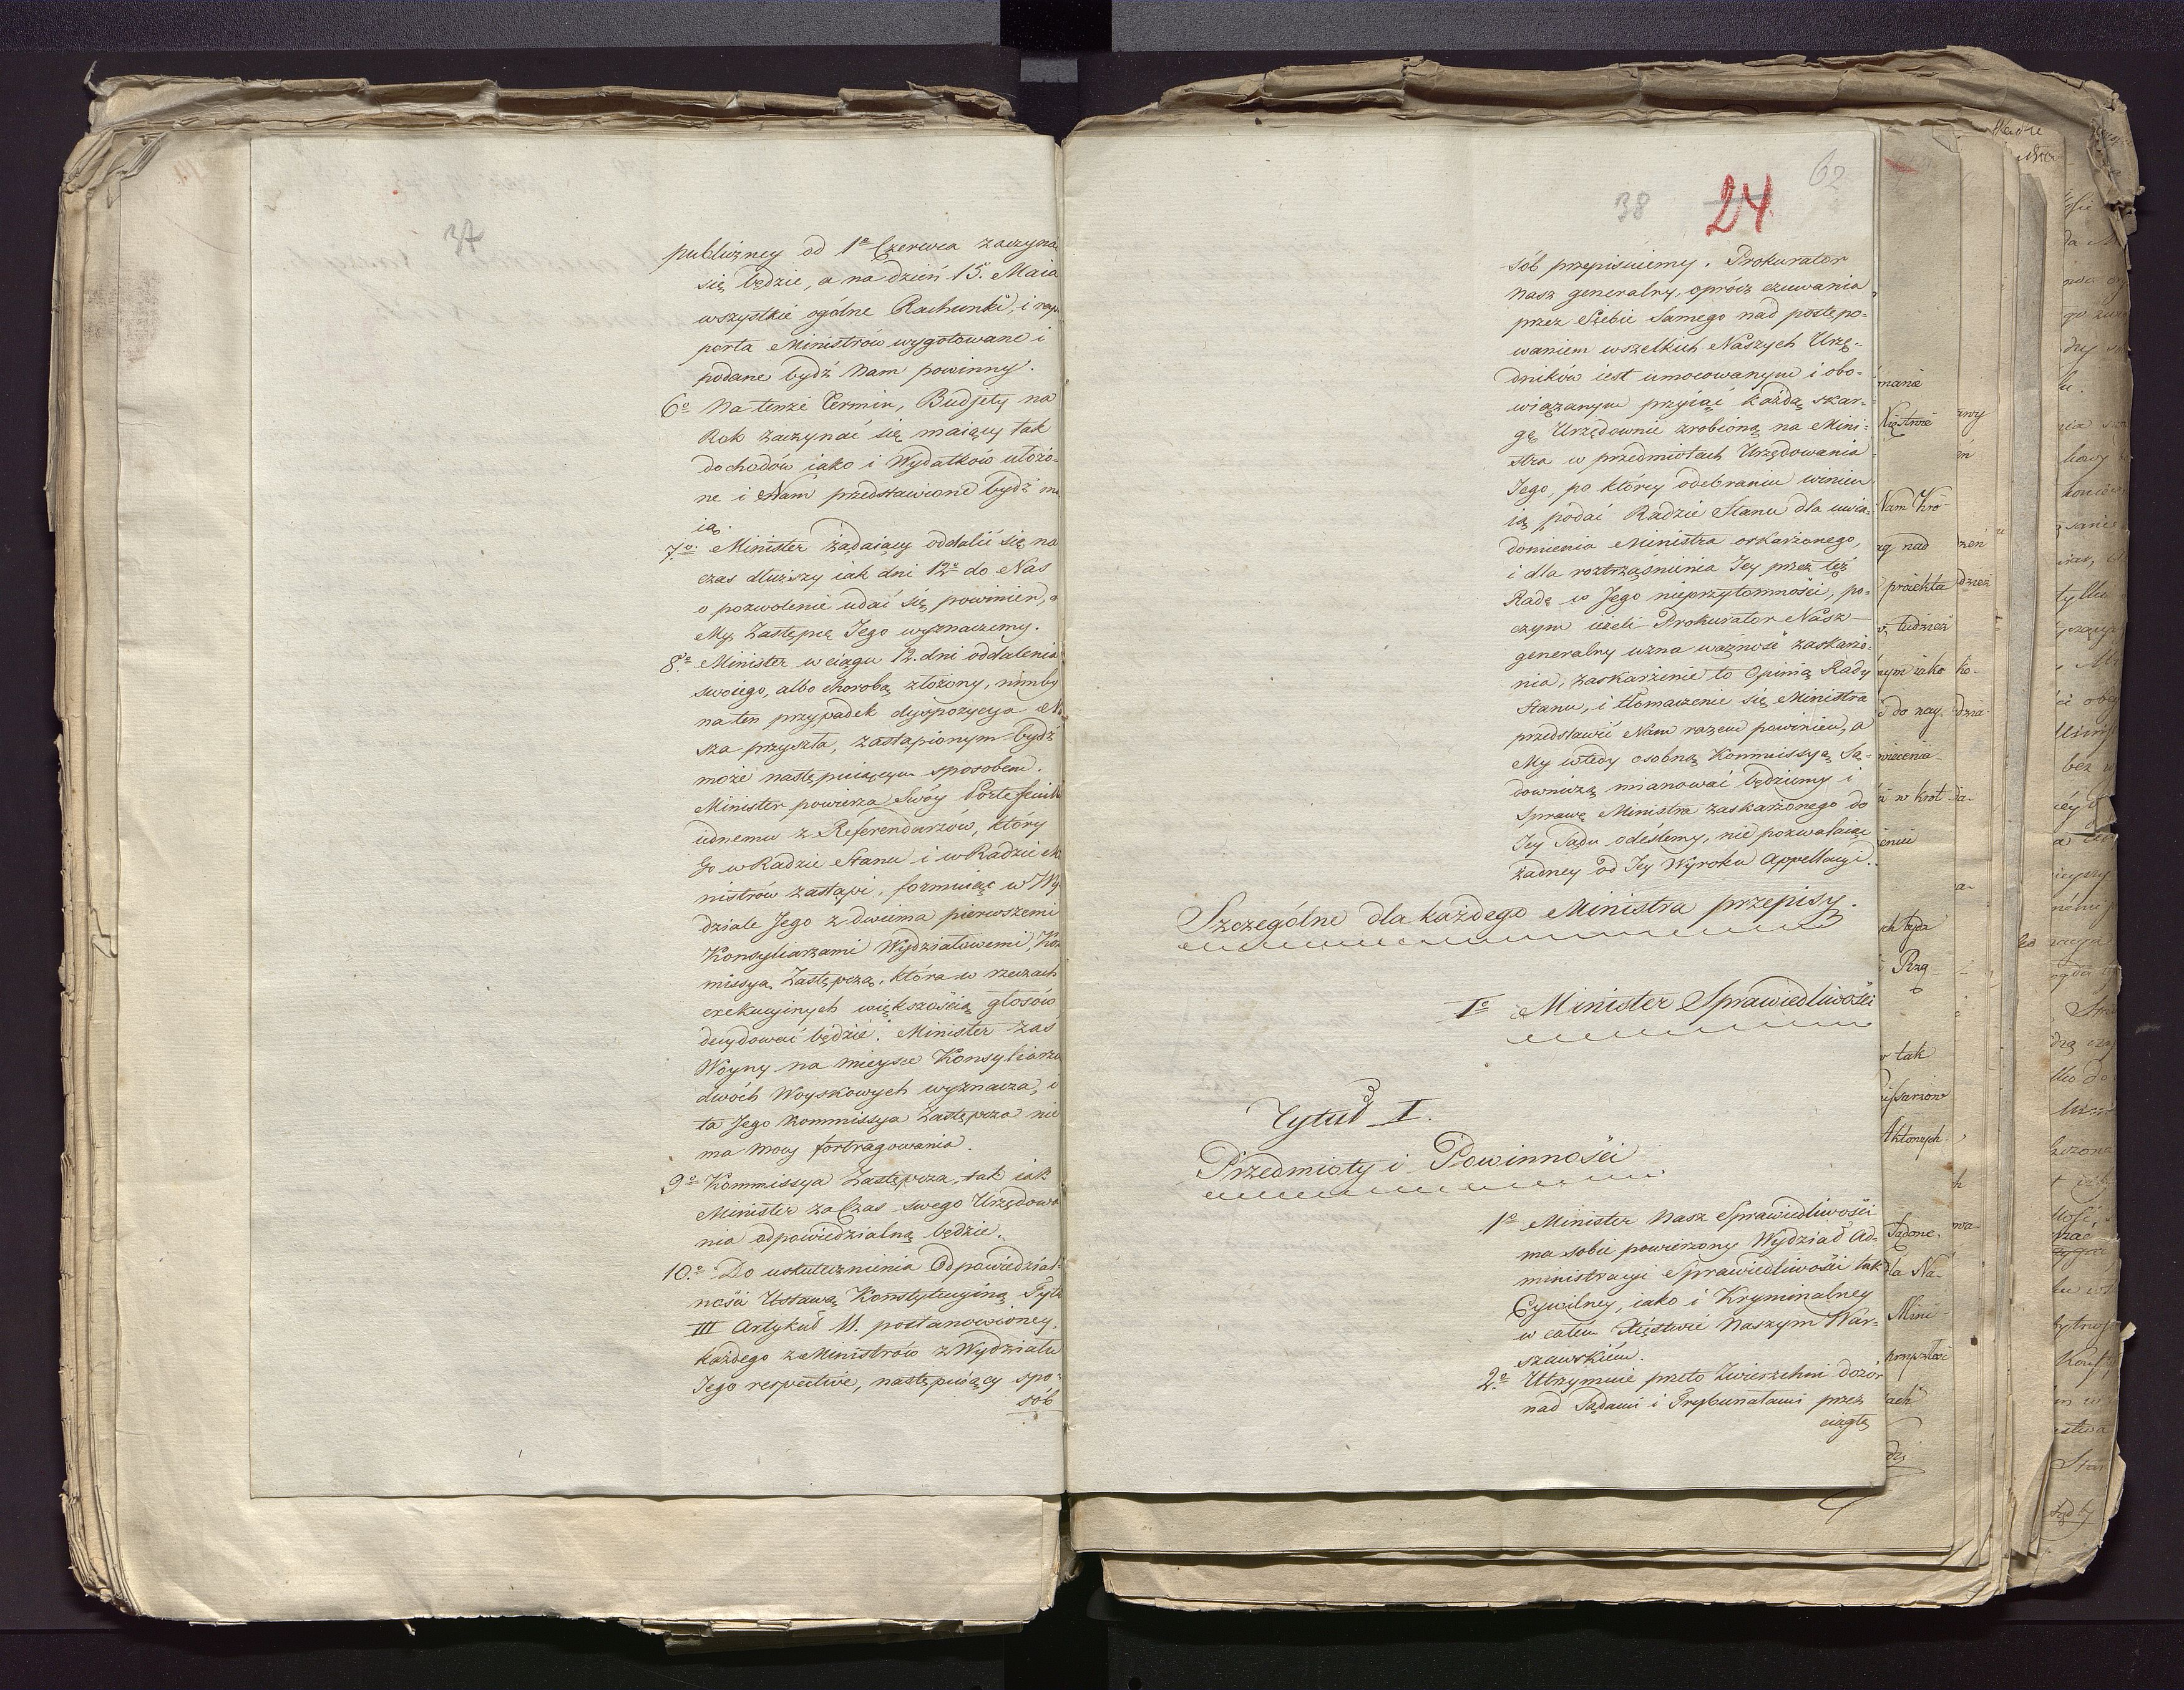 37
publiczney od 1o Czerwca zaczyna
się będzie, a na dzień 15. Maia
wszystkie ogólne Rachunki, i rap
porta Ministrów wygotowane i
podane bydź Nam powinny.
6o Na tenże Termin, Budjety na
Rok zaczynać się maiący tak
dochodów iako i Wydatków ułożo-
ne i Nam przedstawione bydź ma
ią.
7o. Minister żądaiący oddalić się na
czas dłuższy iak dni 12o do Nas
o pozwolenie udać się powinien, a
My Zastępcę Jego wyznaczemy.
8o Minister w ciągu 12. dni oddalenia
swoiego, albo chorobą złożony, nimby
na ten przypadek dyspozycya Na
sza przyszła, zastąpionym bydź
może następuiącym sposobem.
Minister powierza Swóy Portefeuill
iednemu z Referendarzów, który
Go w Radzie Stanu i w Radzie Mi
nistrów zastąpi, formuiąc w Wy
dziale Jego z dwiema pierwszemi
Konsyliarzami Wydziałowemi, Kom
missyą Zastępczą, która w rzeczach
exekucyinych większością głosów
decydować będzie. Minister zaś
Woyny na mieysce Konsyliarzy
dwóch Woyskowych wyznacza, i
ta Jego Kommissya Zastępcza nie
ma mocy fortragowania.
9o Kommissya Zastępcza, tak iak
Minister za Czas swego Urzędowa
nia odpowiedzialną będzie.
10.o Do uskutecznienia Odpowiedzial-
ności Ustawą Konstytucyiną Tytu
III Artykuł 11. postanowioney,
każdego z Ministrów z Wydziału
Jego respective, następuiący spo-
sób
62
38 24.
sób przepisuiemy. Prokurator
Nasz generalny, oprócz czuwania
przez Siebie Samego nad postępo-
waniem wszelkich Naszych Urzę-
dników iest umocowanym i obo-
wiązanym przyiąć każdą skar-
gę Urzędownie zrobioną na Mini-
stra w przedmiotach Urzędowania
Jego, po którey odebraniu winien
ią podać Radzie Stanu dla uwia-
domienia Ministra oskarżonego,
i dla roztrząśnienia Jey przez tęż
Radę w Jego nieprzytomności, po-
czym ieżeli Prokurator Nasz
generalny uzna ważność zaskarże-
nia, zaskarżenie to Opinią Rady
Stanu, i tłomaczenie się Ministra
przedstawić Nam razem powinien, a
My wtedy osobną Kommissyą Są-
downiczą mianować będziemy i
Sprawę Ministra zaskarżonego do
Jey Sądu odeślemy, nie pozwalaiąc
żadney od Jey Wyroku Appellacyi.
Szczególne dla każdego Ministra przepisy.
Io Minister Sprawiedliwości
Tytuł I.
Przedmioty i Powinności
1o Minister Nasz Sprawiedliwości
ma sobie powierzony Wydział Ad-
ministracyi Sprawiedliwości tak
Cywilney, iako i Kryminalney
w całém Xięstwie Naszym War-
szawskiém.
2.o Utrzymuie przeto Zwierzchni dozór
nad Sądami i Trybunałami przez
ciągłą